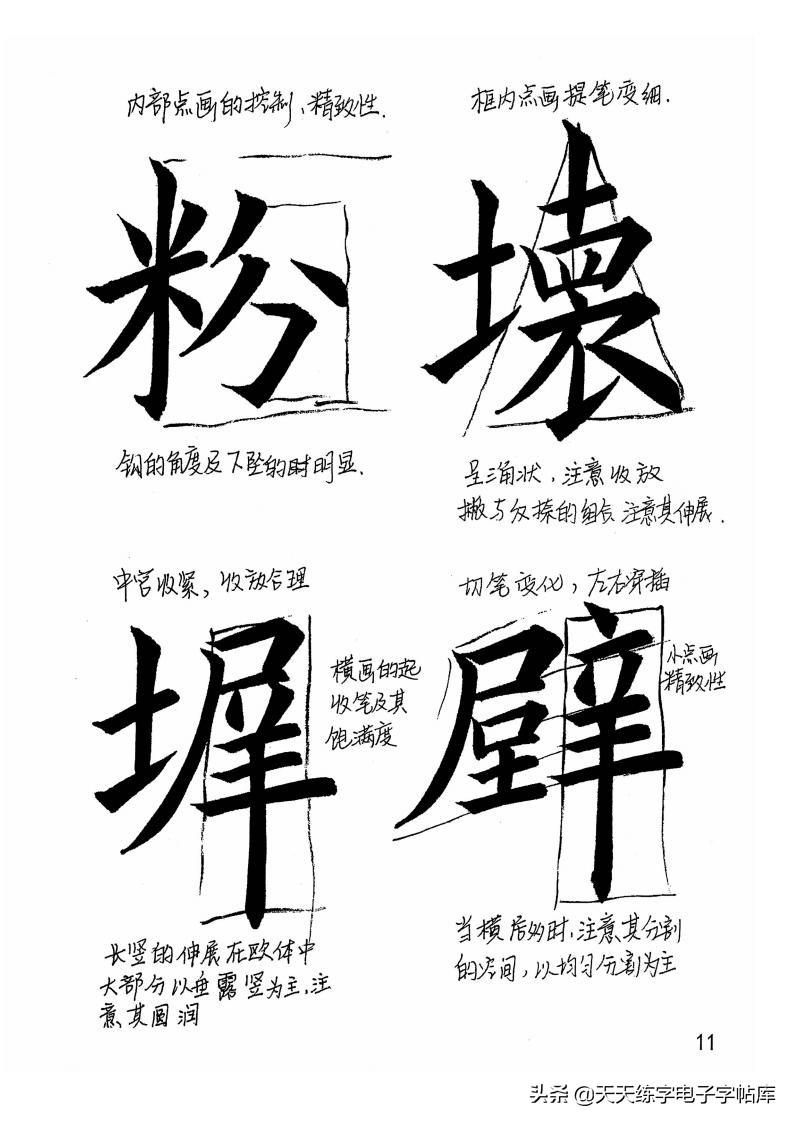 内部点画的控制、精致性.
框内点画提笔变细.
粉
壊
钩的角度及下坠的时明显.
呈三角状，注意收放
撇与反捺的组合 注意其伸展.
中宫收紧，收放合理
切笔变化，左右穿插
墀
横画的起
收笔及其
饱满度
壁
小点画
精致性
长竖的伸展在欧体中
大部分以垂露竖为主,注
意其圆润
当横居多时,注意其分割
的空间，以均匀分割为主
11
头条 @天天练字电子字帖库